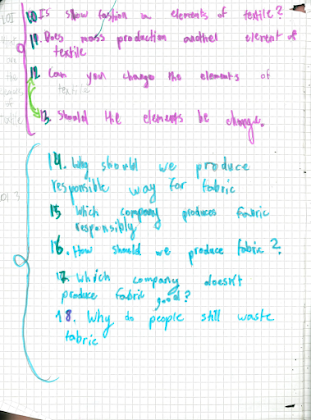 10. Is slow fashion an elements of textile?
11. Does mass production another element of
textile
12. Can you change the elements of
textile
13. Should the elements be change.
14. Why should we produce
responsible way for fabric
15 Which company produces fabric
responsibly
16. How should we produce fabric?
17. Which company doesn't
produce fabric good?
18. Why do people still waste
fabric